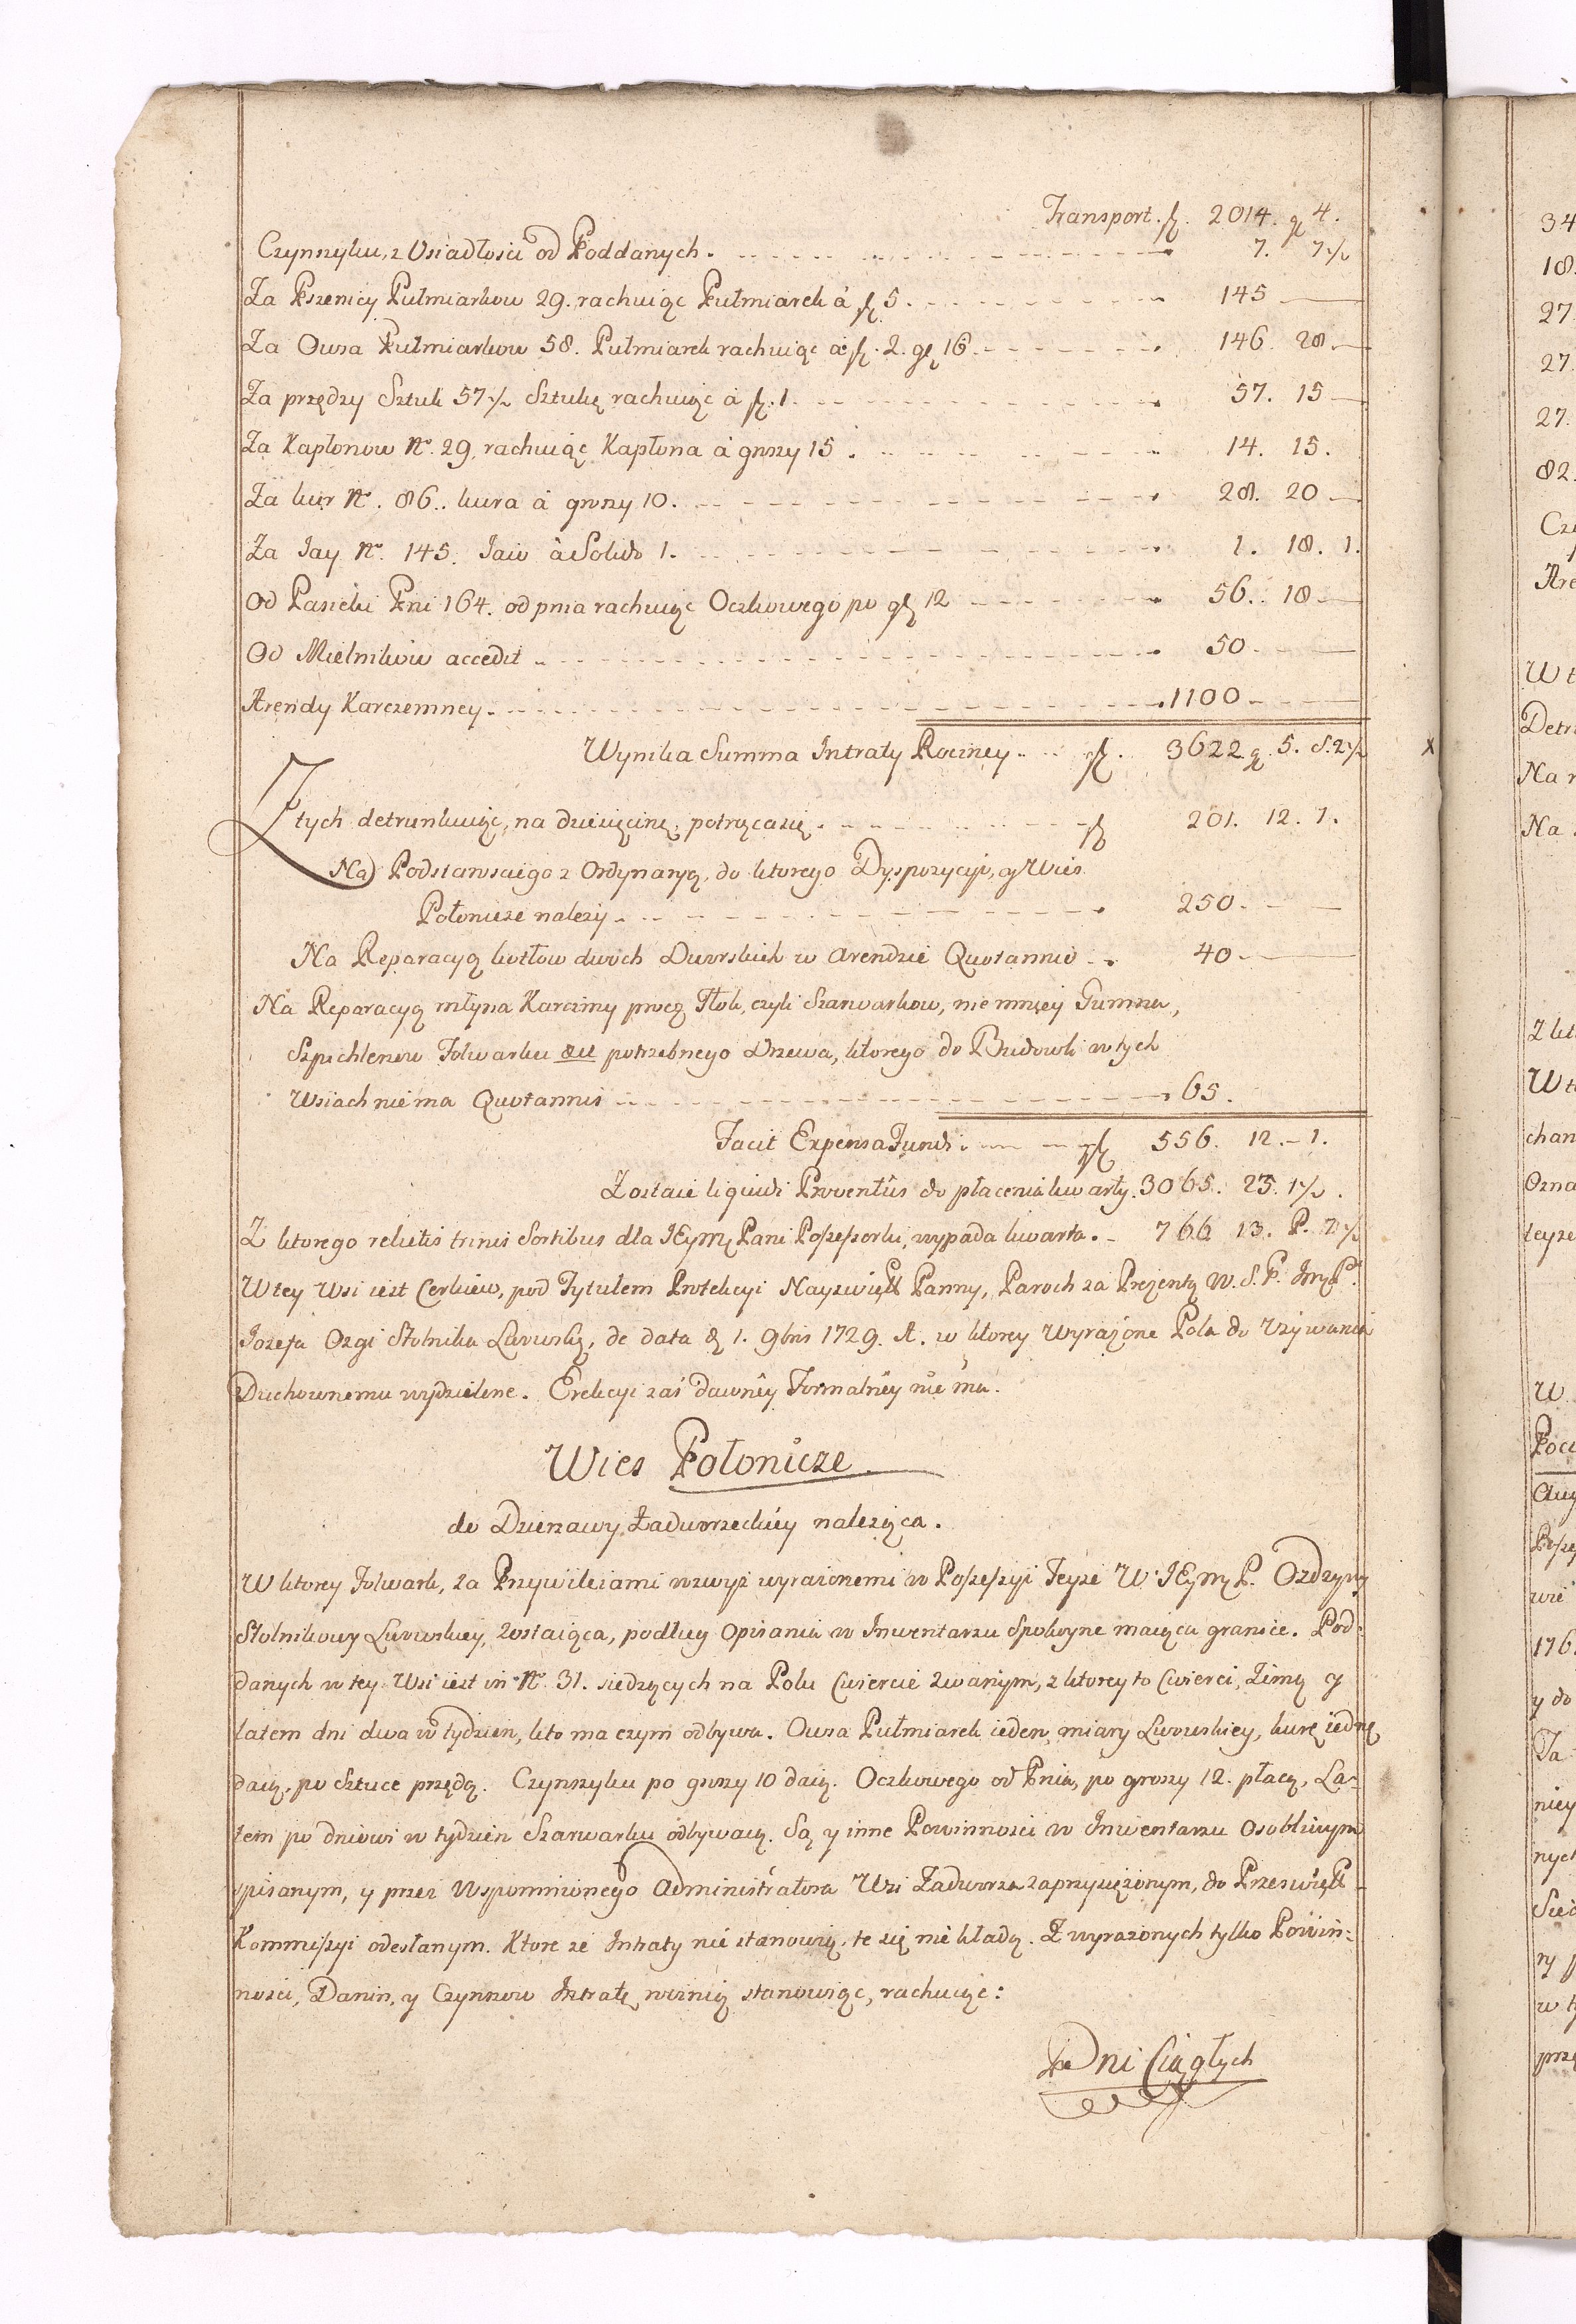 Transport. fl. 2014. gr 4.
Czynszyku, z Osiadłosci od Poddanych. 7. 7½
Za Pszenicy Pułmiarkow 29. rachuiąc Pułmiarek à fl. 5. 145
Za Owsa Pułmiarkow 58. Pułmiarek rachuiąc à fl. 2. gr 16. 146. 28.
Za przędzy Sztuk 57½ Sztukę rachuiąc à fl. 1. 57. 15
Za Kapłonow No. 29. rachuiąc Kapłona à groszy 15. 14. 15.
Za kur No. 86. kura à groszy 10. 28. 20
Za Jay No. 145. Jaie à Solido 1. 1. 18. 1.
Od Pasieki Pni 164. od pnia rachuiąc Oczkowego po gr 12 56. 18
Od Mielnikow accedit 50.
Arendy Karczemney. 1100.
Wynika Summa Intraty Roczney. fl. 3622. gr. 5. s. 2½
Z tych detrunkuiąc, na dziesięcinę potrącasię. fl 201. 12. 1.
Na Podstarosciego z Ordynaryą, do ktorego Dyspozycyi, y Wies
Połonicze nalezy. 250.
Na Reparacyą kotłow dwoch Dworskich w Arendzie Quotannis 40
Na Reparacyą młyna Karczmy procz Tłok, czyli Szarwarkow, nie mniey Gumna,
Szpichlerzow Folwarku &c potrzebnego Drzewa, ktorego do Budowli w tych
Wsiach nie ma Quotannis 65.
Facit Expensa Fundi. fl 556. 12. 1.
Zostaie liquidi Proventûs do płacenia kwarty. 3065. 23. 1½.
Z ktorego relictis trinis Sortibus dla JEymci Pani Possessorki, wypada kwarta. 766 13. P. 2½
W tey Wsi iest Cerkiew, pod Tytułem Protekcyi Nayswięt Panny, Paroch za Prezentą W. S. P. Jmci P.
Jozefa Ozgi Stolnika Lwowski, de data d 1. 9bris 1729. A. w ktorey wyrażone Pola do Używania
Duchownemu wydzielone. Erekcyi zaś dawney Formalney nie ma.
Wies Połonicze
do Dzierzawy Zadworzeckiey należąca.
W ktorey Folwark, za Przywileiami wzwyż wyrazonemi w Possessyi Teyże W. JEymci P. Ozdzyny
Stolnikowy Lwowskiey, zostaiąca, podług Opisania w Inwentarzu Spokoyne maiąca granice. Pod-
danych w tey Wsi iest in No. 31. siedzących na Polu Cwiercie zwanym, z ktorey to Cwierci, Zimą y
latem dni dwa w tydzien, kto ma czym odbywa. Owsa Pułmiarek ieden, miary Lwowskiey, kurę iednę
daią, po sztuce przędą. Czynszyku po groszy 10 daią. Oczkowego od Pnia, po groszy 12. płacą, La-
tem po dniowi w tydzien Szarwarku odbywaią. Są y inne Powinnosci w Inwentarzu Osobliwym
spisanym, y przez Wspomnionego Administratora Wsi Zadworza zaprzysiężonym, do Przeswięt
Kommissyi odesłanym. Ktore że Intraty nie stanowią, te się nie kładą. Z wyrazonych tylko Powin-
nosci, Danin, y Czynszow Intratę roczną stanowiąc, rachuiąc:
Dni Ciągłych